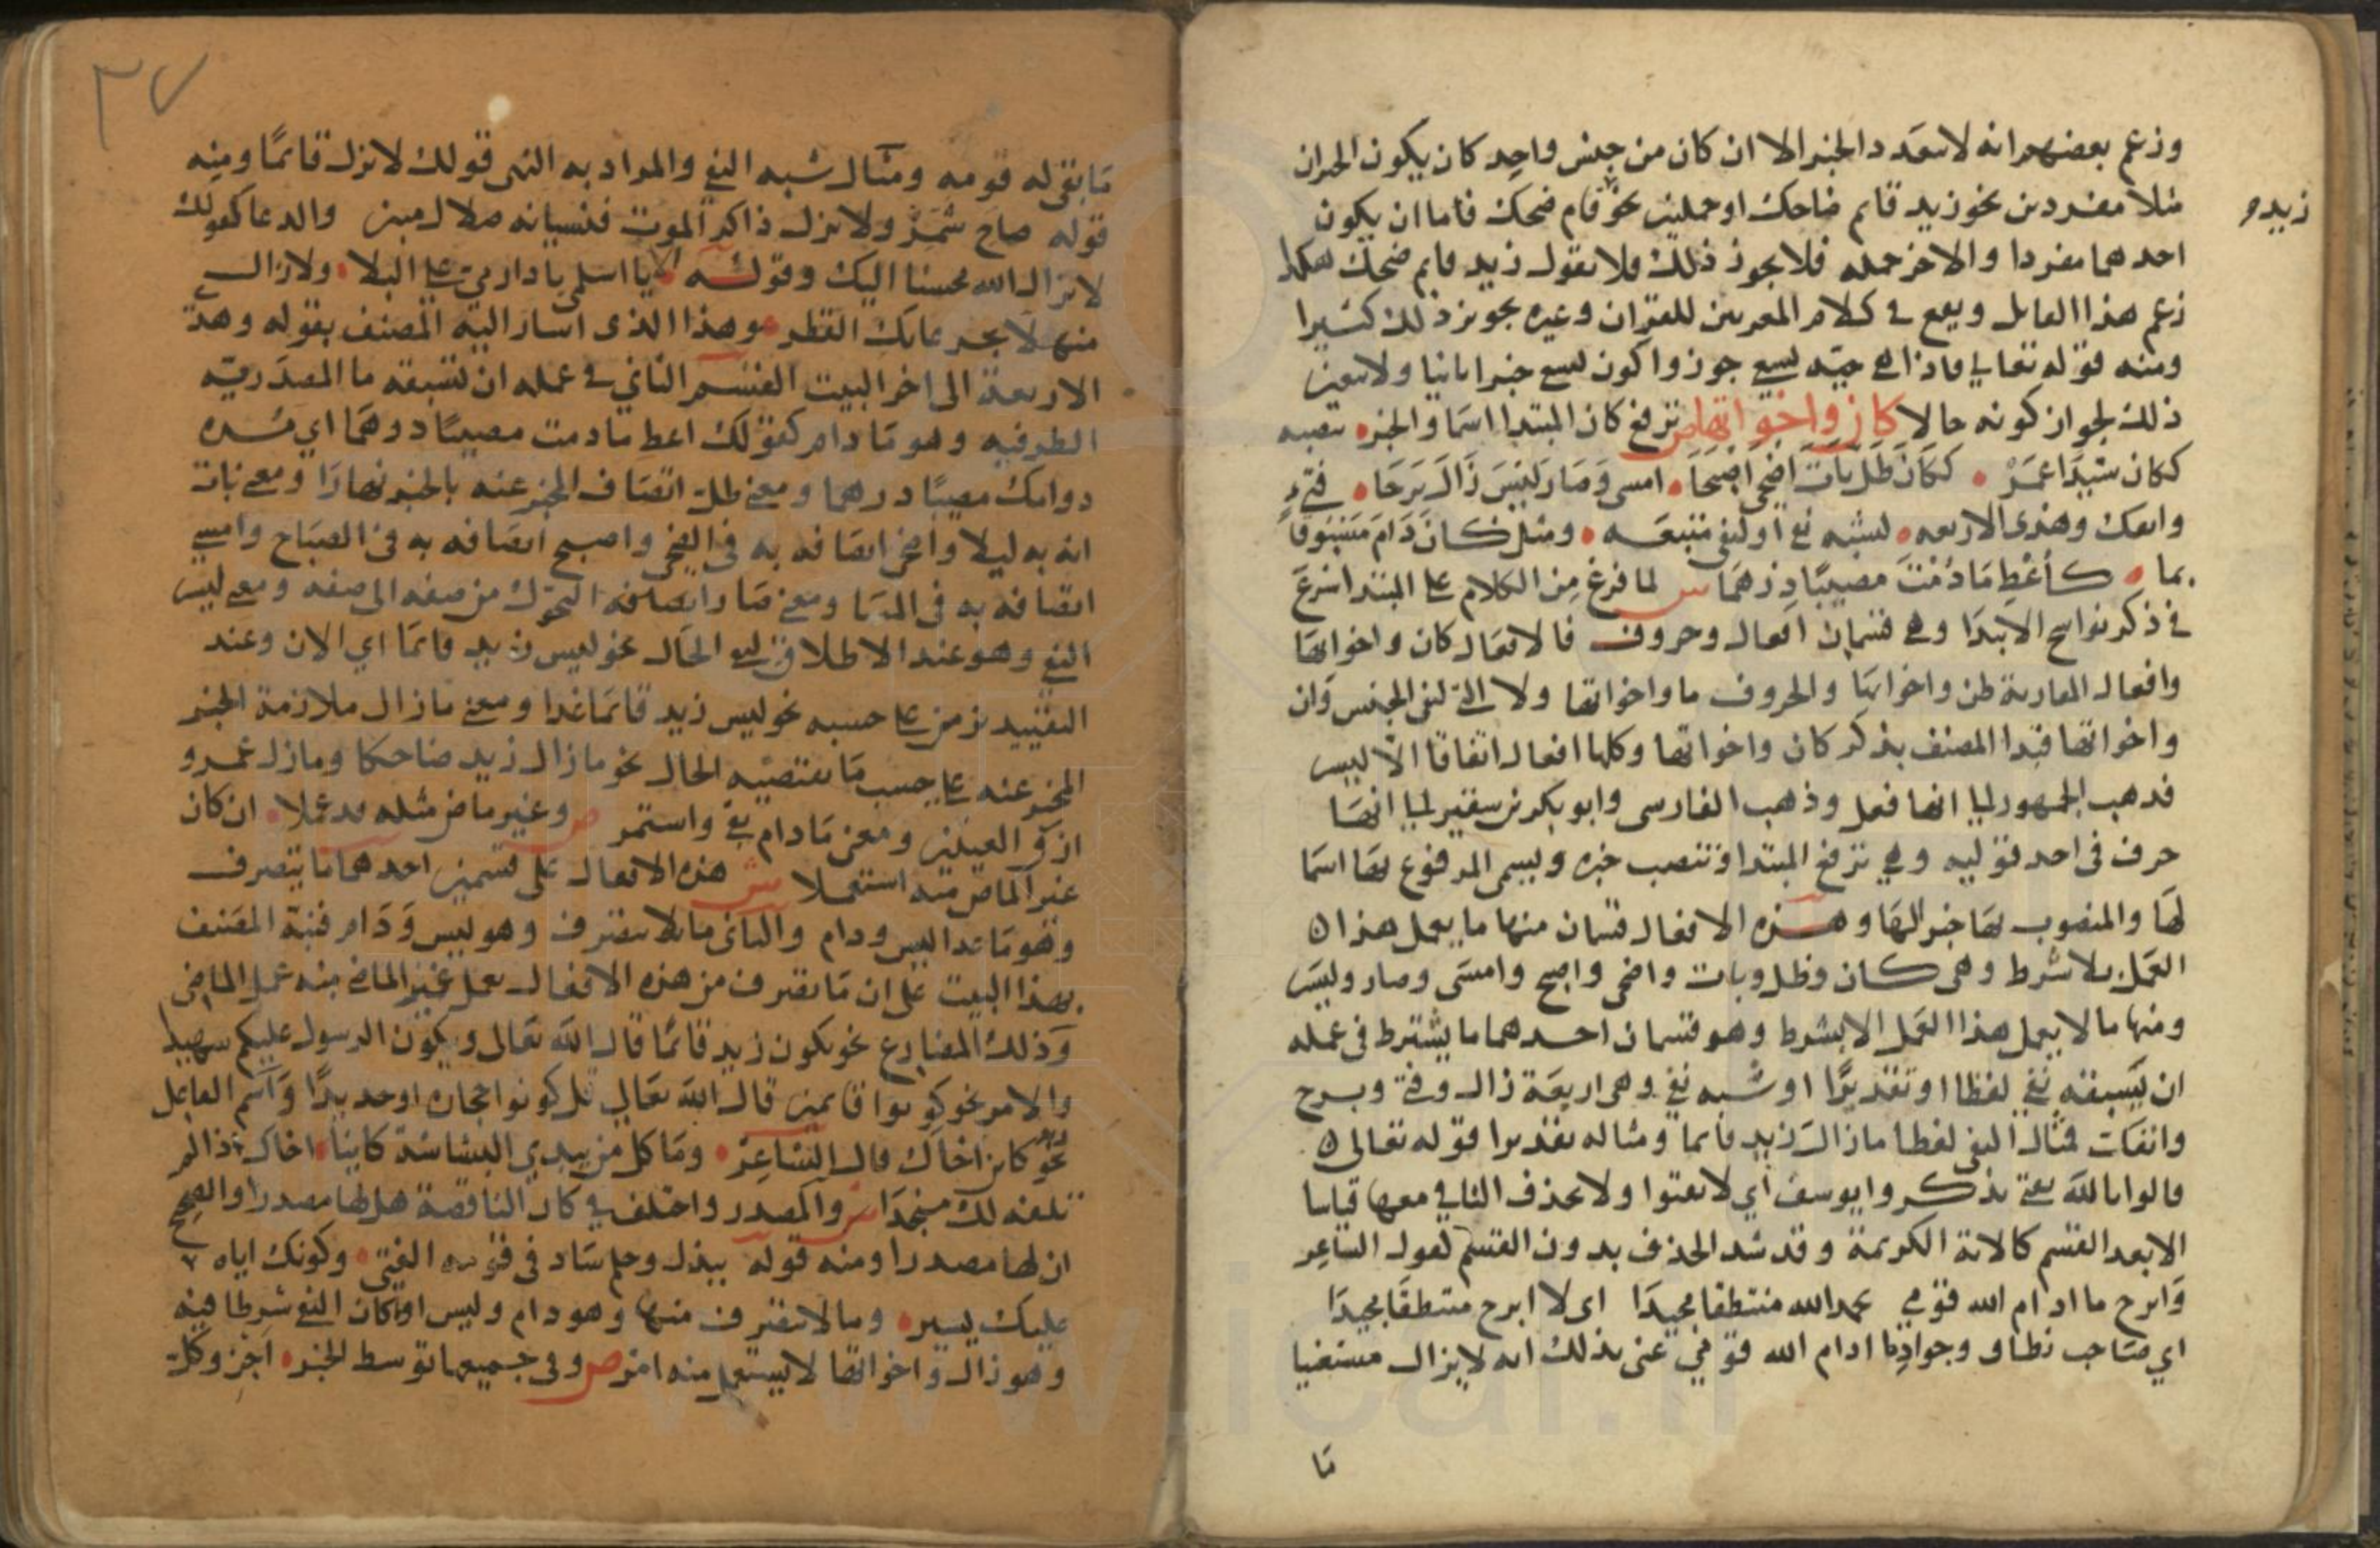 وزعم بعضهم انه لا يتعدد الخبر الا ان كان من جنس واحد كان يكون الخبران
مثلا مفردين نحو زيد قايم ضاحك او جملتين نحو قام ضحك فاما ان يكون
زيد
احدهما مفردا والاخر جمله فلا يجوز ذلك فلا تقول زيد قايم ضحك هكذا
زعم هذا القايل ويقع في كلام المعربين للقران وغيره تجويز ذلك كثيرا
ومنه قوله تعالى فاذا هي حيه تسعى جوزوا كون تسعى خبرا ثانيا ولا يتعين
ذلك لجواز كونه حالا كان واخواتها ص ترفع كان المبتدا اسما والخبر تنصبه
ككان سيدا عمر ككان ظل بات اضحى اصبحا امسى وصار ليس زال برحا فتئ
وانفك وهذى الاربعه لشبه نفي او لنفي متبعه ومثل كان دام مسبوقا
بما كأعط ما دمت مصيبا درهما ش لما فرغ من الكلام على المبتدا شرع
في ذكر نواسخ الابتدا وهي قسمان افعال وحروف فالافعال كان واخواتها
وافعال المقاربة ظن واخواتها والحروف ما واخواتها ولا التي لنفي الجنس وان
واخواتها فبدا المصنف بذكر كان واخواتها وكلها افعال اتفاقا الا ليس
فذهب الجمهور الى انها فعل وذهب الفارسى وابو بكر بن سقير الى انها
حرف في احد قوليه وهي ترفع المبتدا وتنصب خبره ويسمى المرفوع بها اسما
لها والمنصوب بها خبرا لها وهذه الافعال قسمان منها ما يعمل هذا
العمل بلا شرط وهى كان وظل وبات واضحى واصبح وامسى وصار وليس
ومنها ما لا يعمل هذا العمل الا بشرط وهو قسمان احدهما ما يشترط في عمله
ان يسبقه نفي لفظا او تقديرا او شبه نفي وهى اربعة زال وفتئ وبرح
وانفك فمثال النفى لفظا ما زال زيد قايما ومثاله تقديرا قوله تعالى
قالوا تالله تفتؤ تذكر وا يوسف اي لا تفتوا ولا يحذف النافي معها قياسا
الا بعد القسم كالاية الكريمة وقد شذ الحذف بدون القسم كقول الشاعر
وابرح ما ادام الله قومي بحمد الله منتطقا مجيدا اى لا ابرح منتطقا مجيدا
اي صاحب نطاق وجواد ما ادام الله قومي عنى بذلك انه لا يزال مستغنيا
ما
٣٧
ما بقى له قومه ومثال شبه النفي والمراد به النهى قولك لا تزل قائما ومنه
قوله صاح شمر ولا تزل ذاكر الموت فنسيانه ضلال مبين والدعا كقولك
لا يزال الله محسنا اليك وقوله الا يا اسلمى يا دار مي على البلا ولا زال
منهلا بجرعايك القطر وهذا الذى اشار اليه المصنف بقوله وهذى
الاربعة الى اخر البيت القسم الثاني في عمله ان تسبقه ما المصدرية
الظرفيه وهو ما دام كقولك اعط ما دمت مصيبا درهما اي مده
دوامك مصيبا درهما ومعنى ظل اتصاف المخبر عنه بالخبر نهارا ومعنى بات
انه به ليلا واضحى اتصافه به في الضحى واصبح اتصافه به في الصباح وامسى
اتصافه به في المسا ومعنى صار اتصافه التحول من صفه الى صفه ومعنى ليس
النفي وهو عند الاطلاق لنفي الحال نحو ليس زيد قايما اي الان وعند
التقييد بزمن على حسبه نحو ليس زيد قائما غدا ومعنى ما زال ملازمة الخبر
المخبر عنه على حسب ما يقتضيه الحال نحو ما زال زيد ضاحكا وما زال عمرو
ازرق العينين ومعنى ما دام بقي واستمر ص وغير ماض مثله قد عملا ان كان
غير الماض منه استعملا ش هذه الافعال على قسمين احدهما ما يتصرف
وهو ما عدا ليس ودام والثانى ما لا يتصرف وهو ليس ودام فنبه المصنف
بهذا البيت على ان ما يتصرف من هذه الافعال يعمل غير الماضي منه عمل الماضى
وذلك المضارع نحو يكون زيد قائما قال الله تعالى ويكون الرسول عليكم شهيدا
والامر نحو كونوا قايمين قال الله تعالى قل كونوا حجارة او حديدا واسم الفاعل
نحو كاين اخاك قال الشاعر وما كل من يبدي البشاشة كاينا اخاك اذا لم
تلفه لك منجدا ش والمصدر واختلف في كان الناقصة هل لها مصدر او الصحيح
ان لها مصدرا ومنه قوله ببذل وحلم ساد في قومه الفتى وكونك اياه
عليك يسير وما لا يتصرف منها وهو دام وليس او ما كان النفي شرطا فيه
وهو زال واخواتها لا يستعمل منه امر ص وفي جميعها توسط الخبر اجز وكل